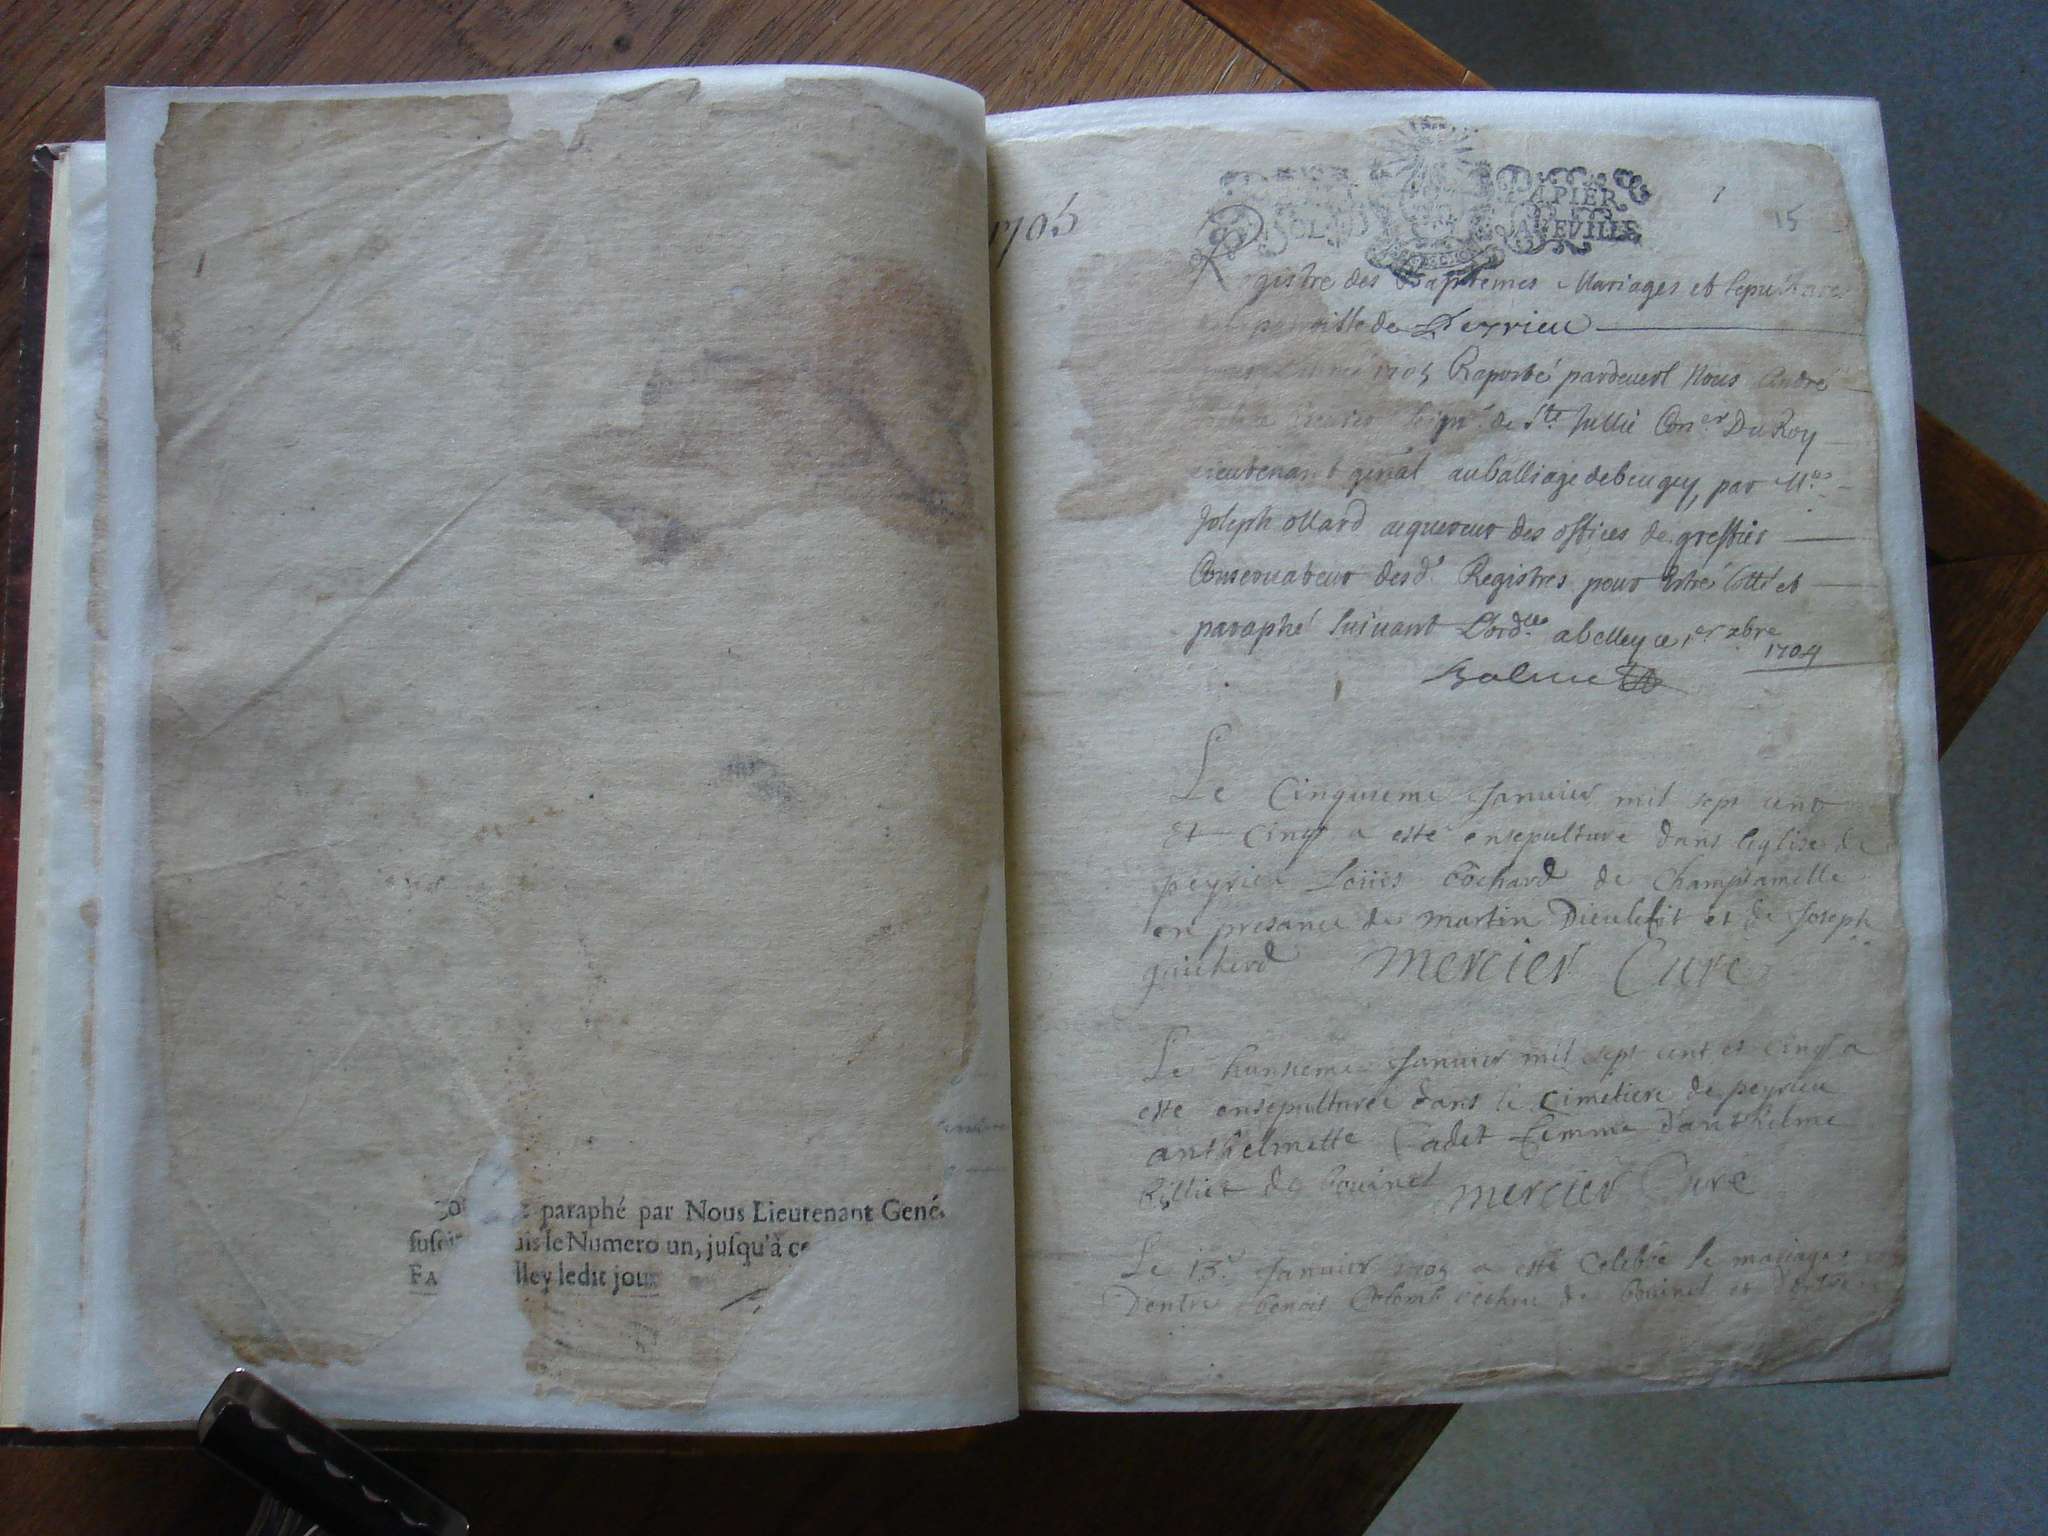 paraphé par Nous Lieutenant Gené
le Numero un, juſqu'à ce
lley ledit jour
1705
PAPIER
SOL
1
15
Registre des Baptemes Mariages et sepultures
paroisse de Peyrieu
1705 Raporté pardevest Nous André
de Ste Jullie Coner Du Roy
Lieutenant genal au balliage debeugey, par Me
Joseph ollard aquereur des offices de greffier
Conservateur desd. Registres pour Estre Cotté et
paraphé suivant L'ordce abelley ce 1er xbre
1704
Balme
Le Cinquieme Janvier mil sept cent
Et Cinq a esté ensepulture dans leglise de
peyrieu Loüis bochard de Champdamelle
en presance de martin Dieulefit et de Joseph
guicherd mercier Curé
Le huitieme Janvier mil sept cent et cinq a
esté ensepulturee dans le cimetiere de peyrieu
anthelmette Cadet femme Danthelme
Rillier de bovinel mercier Curé
Le 13e Janvier 1705 a esté Celebré le mariage
Dentre benoit Colomb de bovinel et